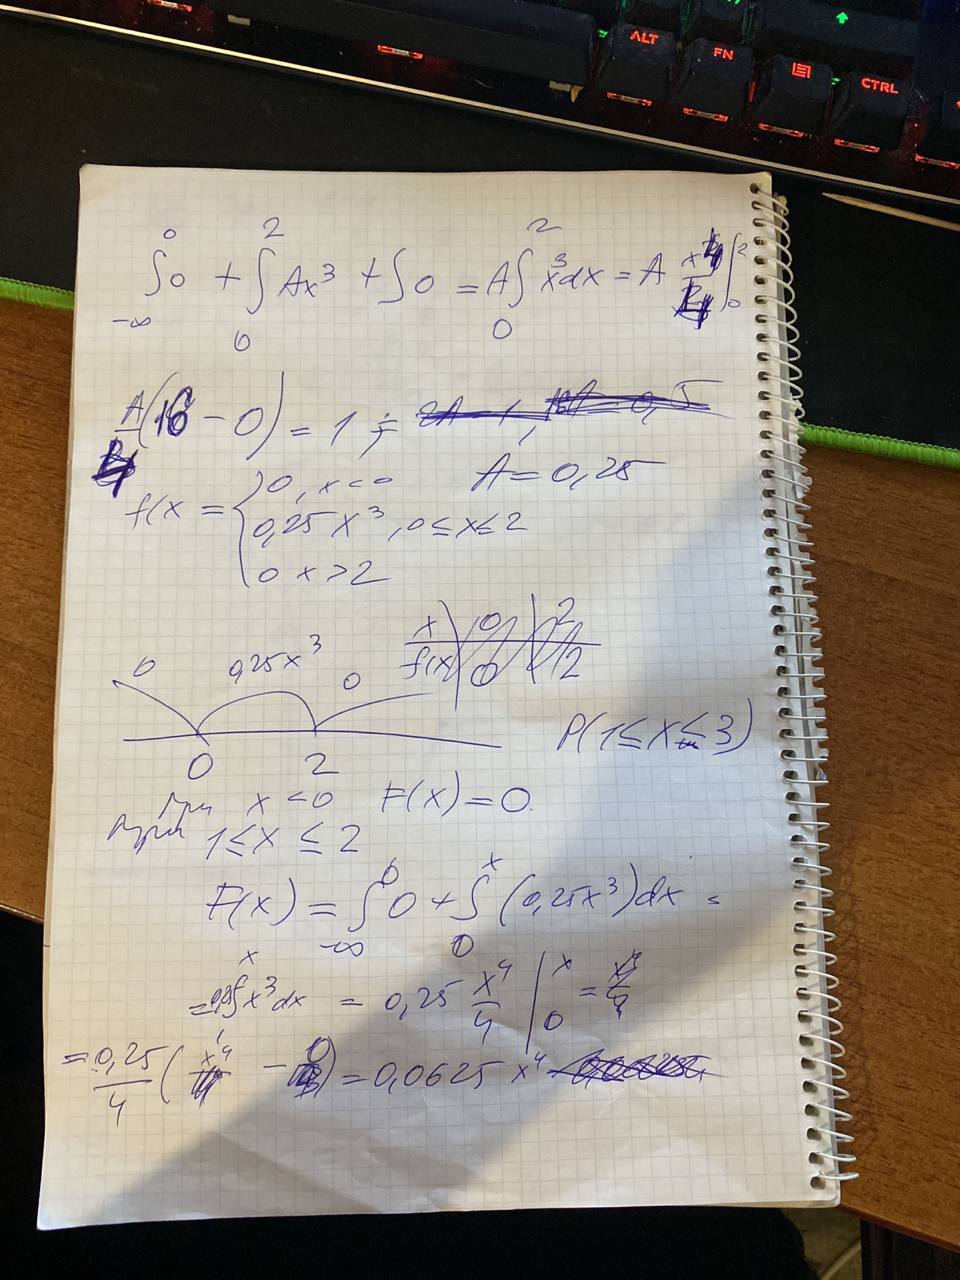 ALT
FN
CTRL
∫_{-∞}^{0} 0 + ∫_{0}^{2} Ax³ + ∫ 0 = A ∫_{0}^{2} x³dx = A x⁴/4 |_{0}^{2}
A/4 (16 - 0) = 1 ;
A = 0,25
f(x = { 0, x < 0
0,25x³, 0 ≤ x ≤ 2
0 x > 2
x 0 2
f(x) 0 2
0 0,25x³ 0
0 2
P(1 ≤ x ≤ 3)
При x < 0 F(x) = 0.
при 1 ≤ x ≤ 2
F(x) = ∫_{-∞}^{0} 0 + ∫_{0}^{x} (0,25x³)dx =
= 0,25 ∫^{x} x³dx = 0,25 x⁴/4 |_{0}^{x} =
= 0,25/4 (x⁴ - 0) = 0,0625 x⁴